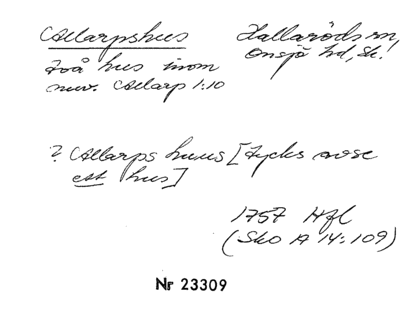 Allarpshus
Hallaröds sn,
Onsjö hd, Sk.!
två hus inom
nuv. Allarp 1:10
? Allarps huus [tycks avse
ett hus]
1757 Hfl
(Sko A 14:109)
Nr 23309